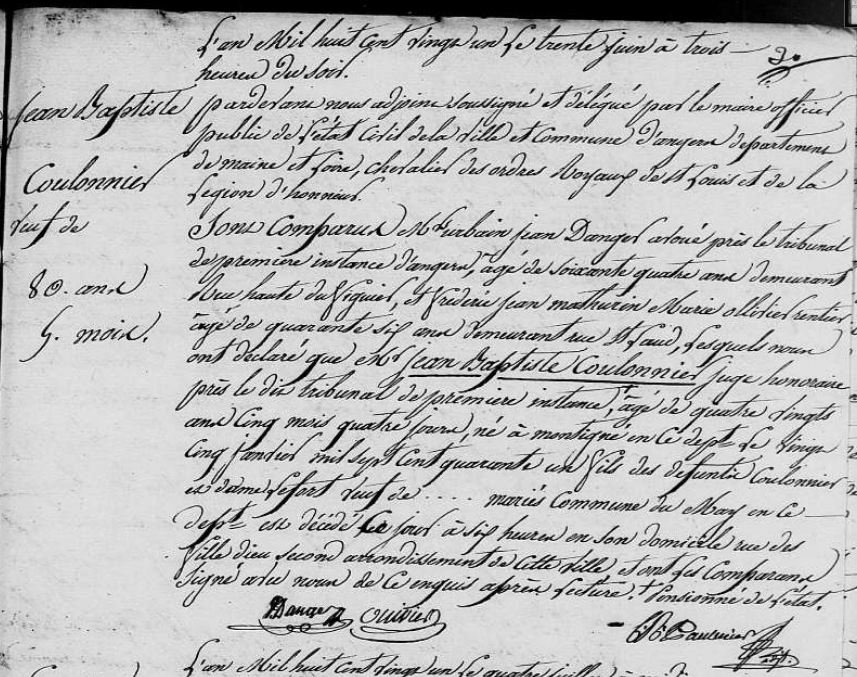 L'an Mil huit cent vingt un Le trente juin à trois
heures du soir.
Jean Baptiste
Coulonnier
veuf de
80. ans
5. mois.
pardevant nous adjoint soussigné et délégué par le maire officier
public de l'état Civil de la ville et Commune d'angers departement
de maine et Loire, chevalier des ordres Royaux de St Louis et de la
Legion d'honneur.
Sont Comparus Mr urbain jean Danger avoué près le tribunal
de premiere instance d'angers, agé de soixante quatre ans demeurant
Rue haute du figuier, et frederic jean mathurin Marie ollivier rentier
âgé de quarante six ans demeurant rue St Laud, Lesquels nous
ont declaré que Mr jean Baptiste Coulonnier juge honoraire
près le dit tribunal de premiere instance, + âgé de quatre vingts
ans Cinq mois quatre jours, né à montigné en ce dept Le vingt
Cinq janvier mil sept Cent quarante un fils des defunts Coulonnier
et dame Lefort veuf de .... mariés Commune du May en Ce
dept est décédé Ce jour à six heures en son domicile rue des
Ville dieu second arrondissement de Cette ville et ont les Comparans
signé avec nous de Ce enquis après Lecture. + Pensionné de l'état.
Danger Ollivier
L'an Mil huit Cent vingt un Le quatre juillet à